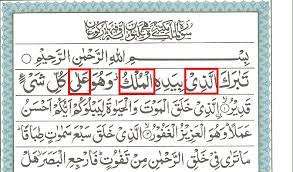 بِسْمِ اللهِ الرَّحْمٰنِ الرَّحِيْمِ
تَبٰرَكَ الَّذِيْ بِيَدِهِ الْمُلْكُ وَهُوَ عَلٰى كُلِّ شَيْءٍ
قَدِيْرُ ۙ الَّذِيْ خَلَقَ الْمَوْتَ وَالْحَيٰوةَ لِيَبْلُوَكُمْ اَيُّكُمْ اَحْسَنُ
عَمَلًا وَهُوَ الْعَزِيْزُ الْغَفُوْرُ ۙ الَّذِيْ خَلَقَ سَبْعَ سَمٰوٰتٍ طِبَاقًا
مَا تَرٰى فِيْ خَلْقِ الرَّحْمٰنِ مِنْ تَفٰوُتٍ فَارْجِعِ الْبَصَرَ هَلْ